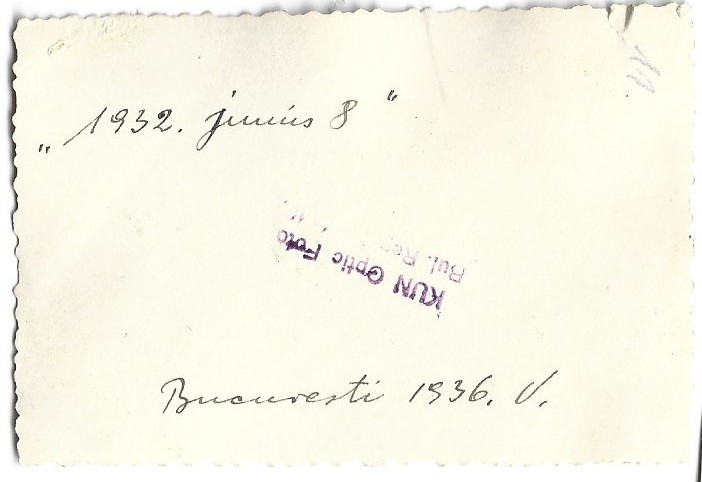 „1932. június 8"
KUN Optic Foto
Bul.
Bucuresti 1936. V.